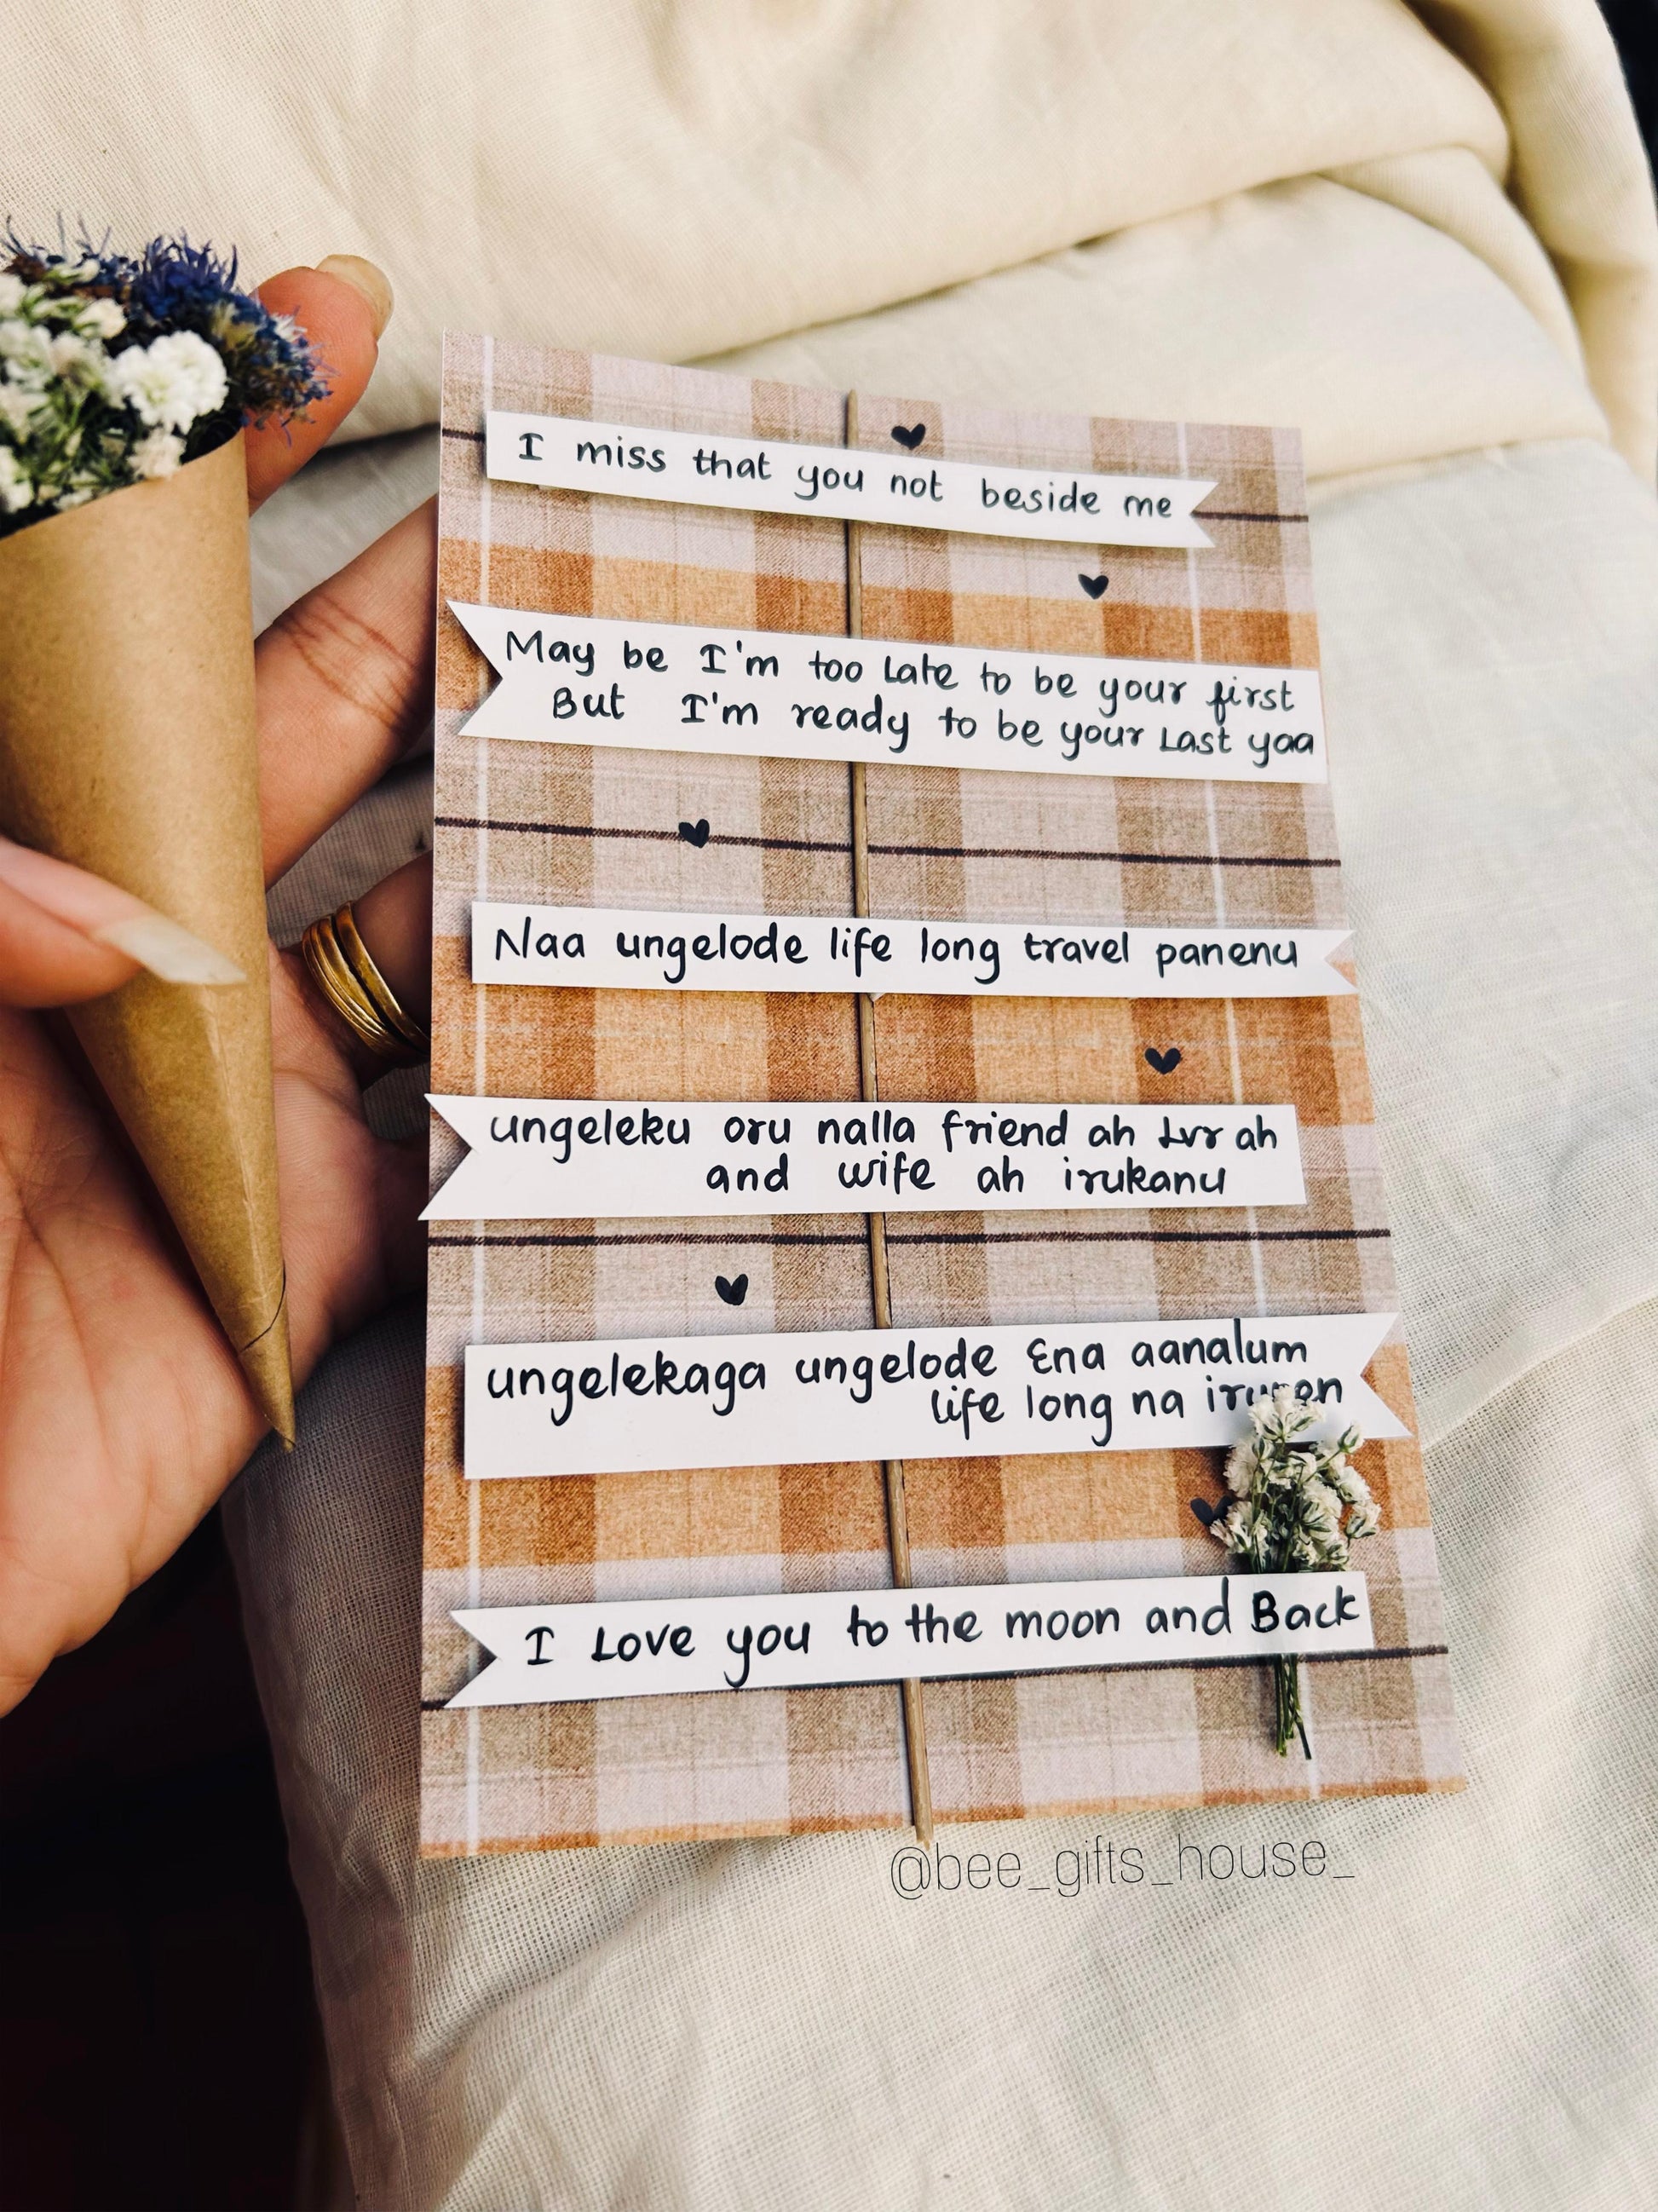 I miss that you not beside me
May be I'm too Late to be your first
But I'm ready to be your Last yaa
Naa ungelode life long travel panenu
ungeleku oru nalla friend ah Lvr ah
and wife ah irukanu
ungelekaga ungelode Ena aanalum
life long na
I Love you to the moon and Back
@bee_gifts_house_